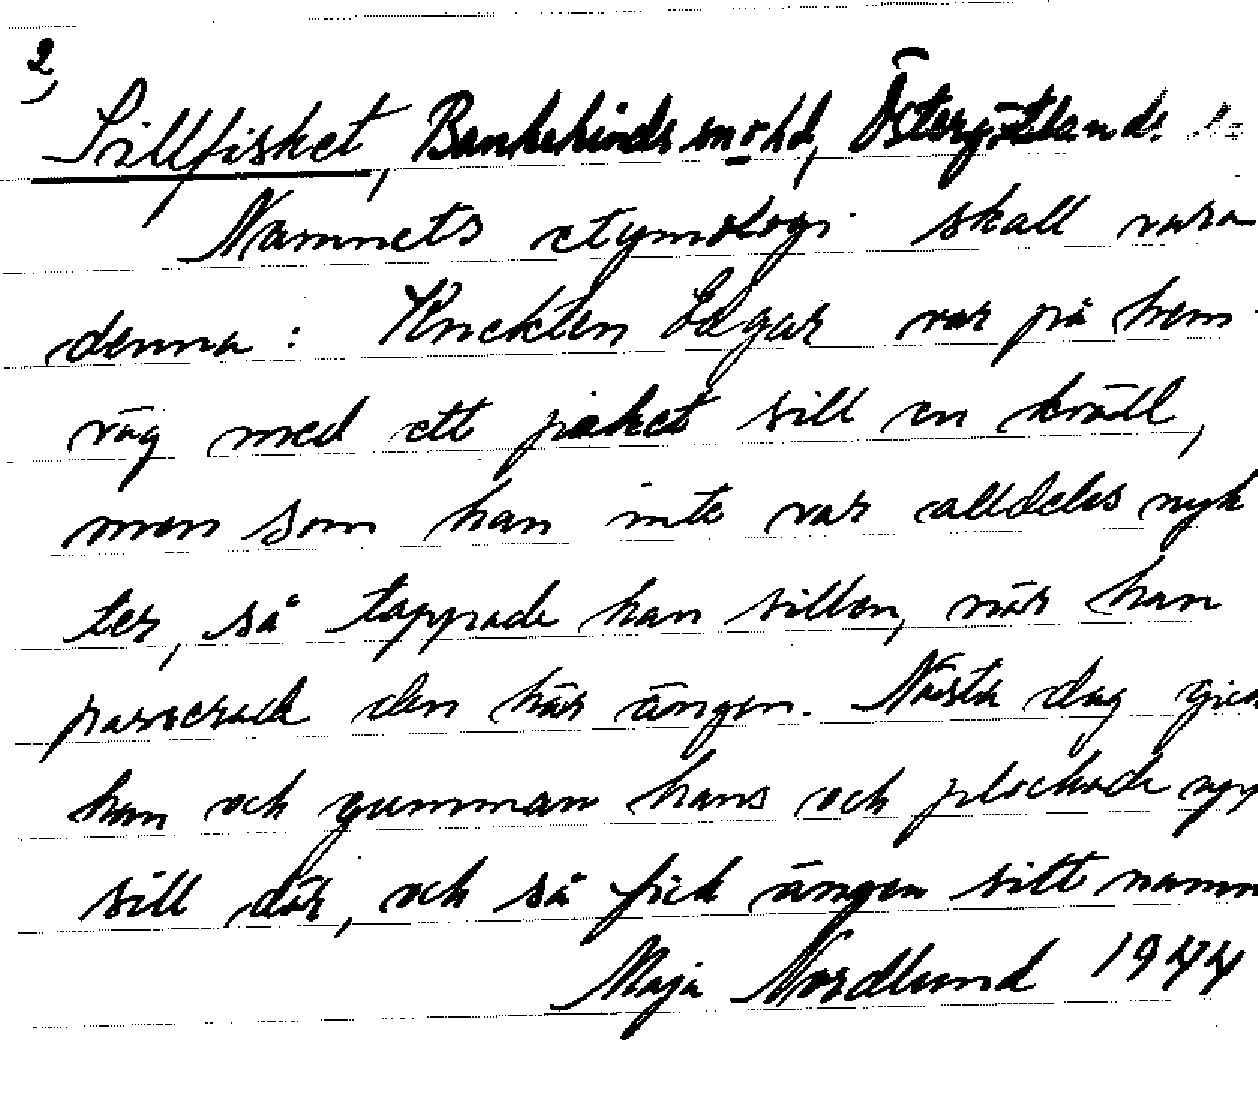 2)
Sillfisket, Bankekinds sn o. hd, Östergötlands
Namnets etymologi skall vara
denna: Knekten Edgar var på hem-
väg med ett paket sill en kväll,
men som han inte var alldeles nyk
ter, så tappade han sillen, när han
passerade den här ängen. Nästa dag gick
han och gumman hans och plockade upp
sill där, och så fick ängen sitt namn
Maja Nordlund 1944